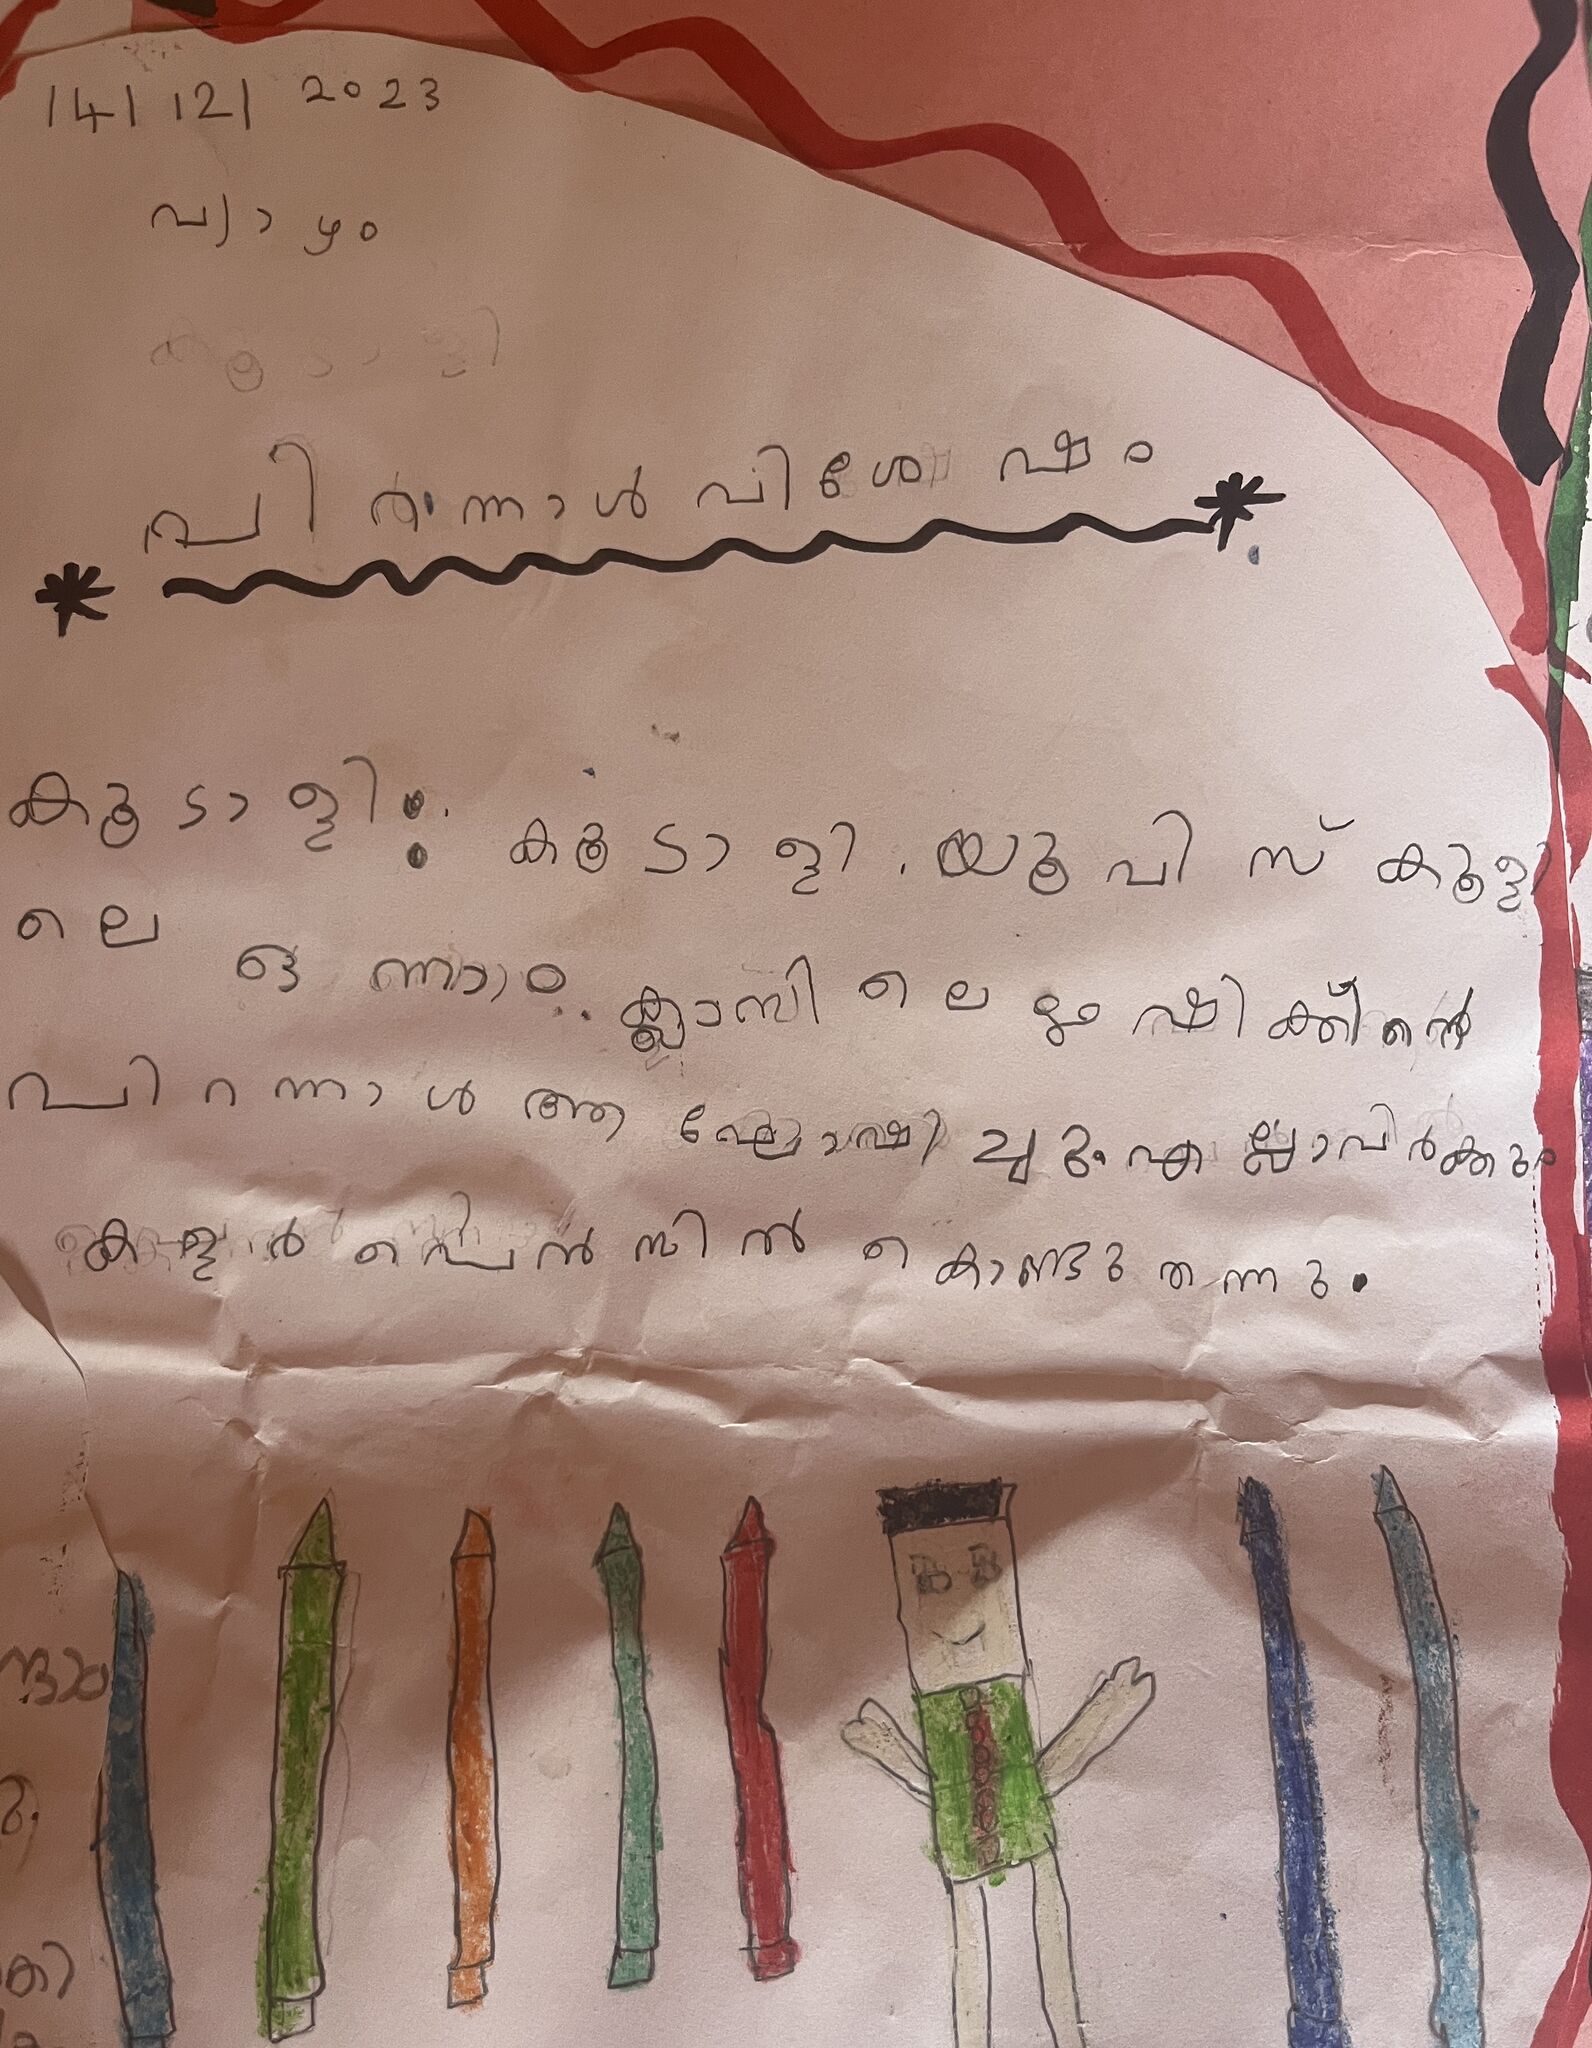 14/12/2023
വ്യാഴം
പിറന്നാൾ വിശേഷം
കൂടാളി: കൂടാളി. യൂ പി സ്കൂളി
ലെ ഒന്നാം. ക്ലാസിലെ ഇഷിക്കിൻ
പിറന്നാൾ ആഘോഷിച്ചു. എല്ലാവിർക്കും
കളർ പെൻസിൽ കൊണ്ടു തന്നു.